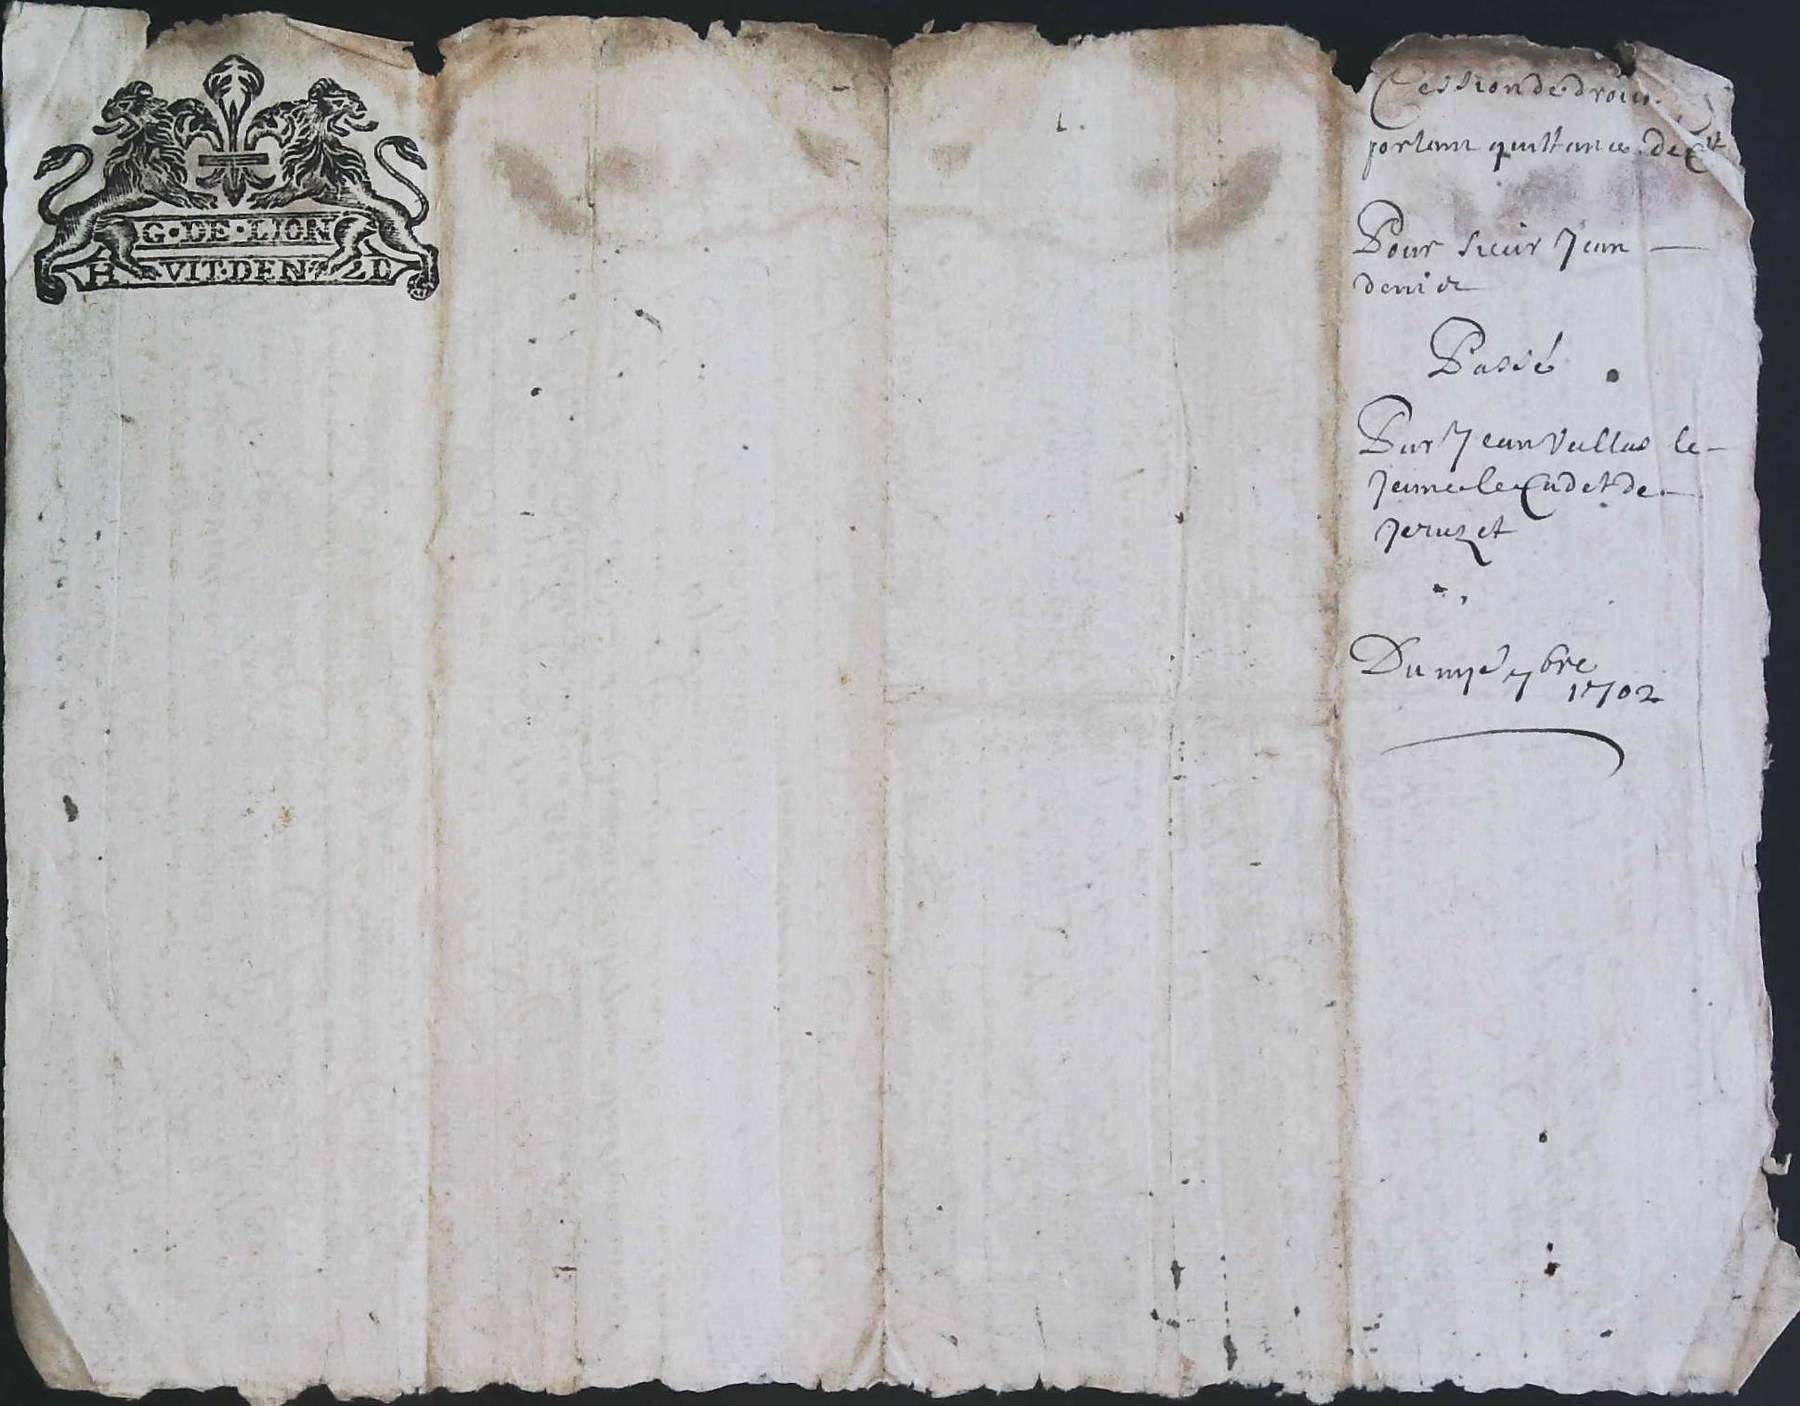 G·DE·LION
HVIT·DEN 2 D
Cession de droits
portant quittance de C lt
Pour sieur Jean
denier
Passé
Par Jean Vallas le
Jeune le Cadet de
Jeruzet
Du 7bre
1702